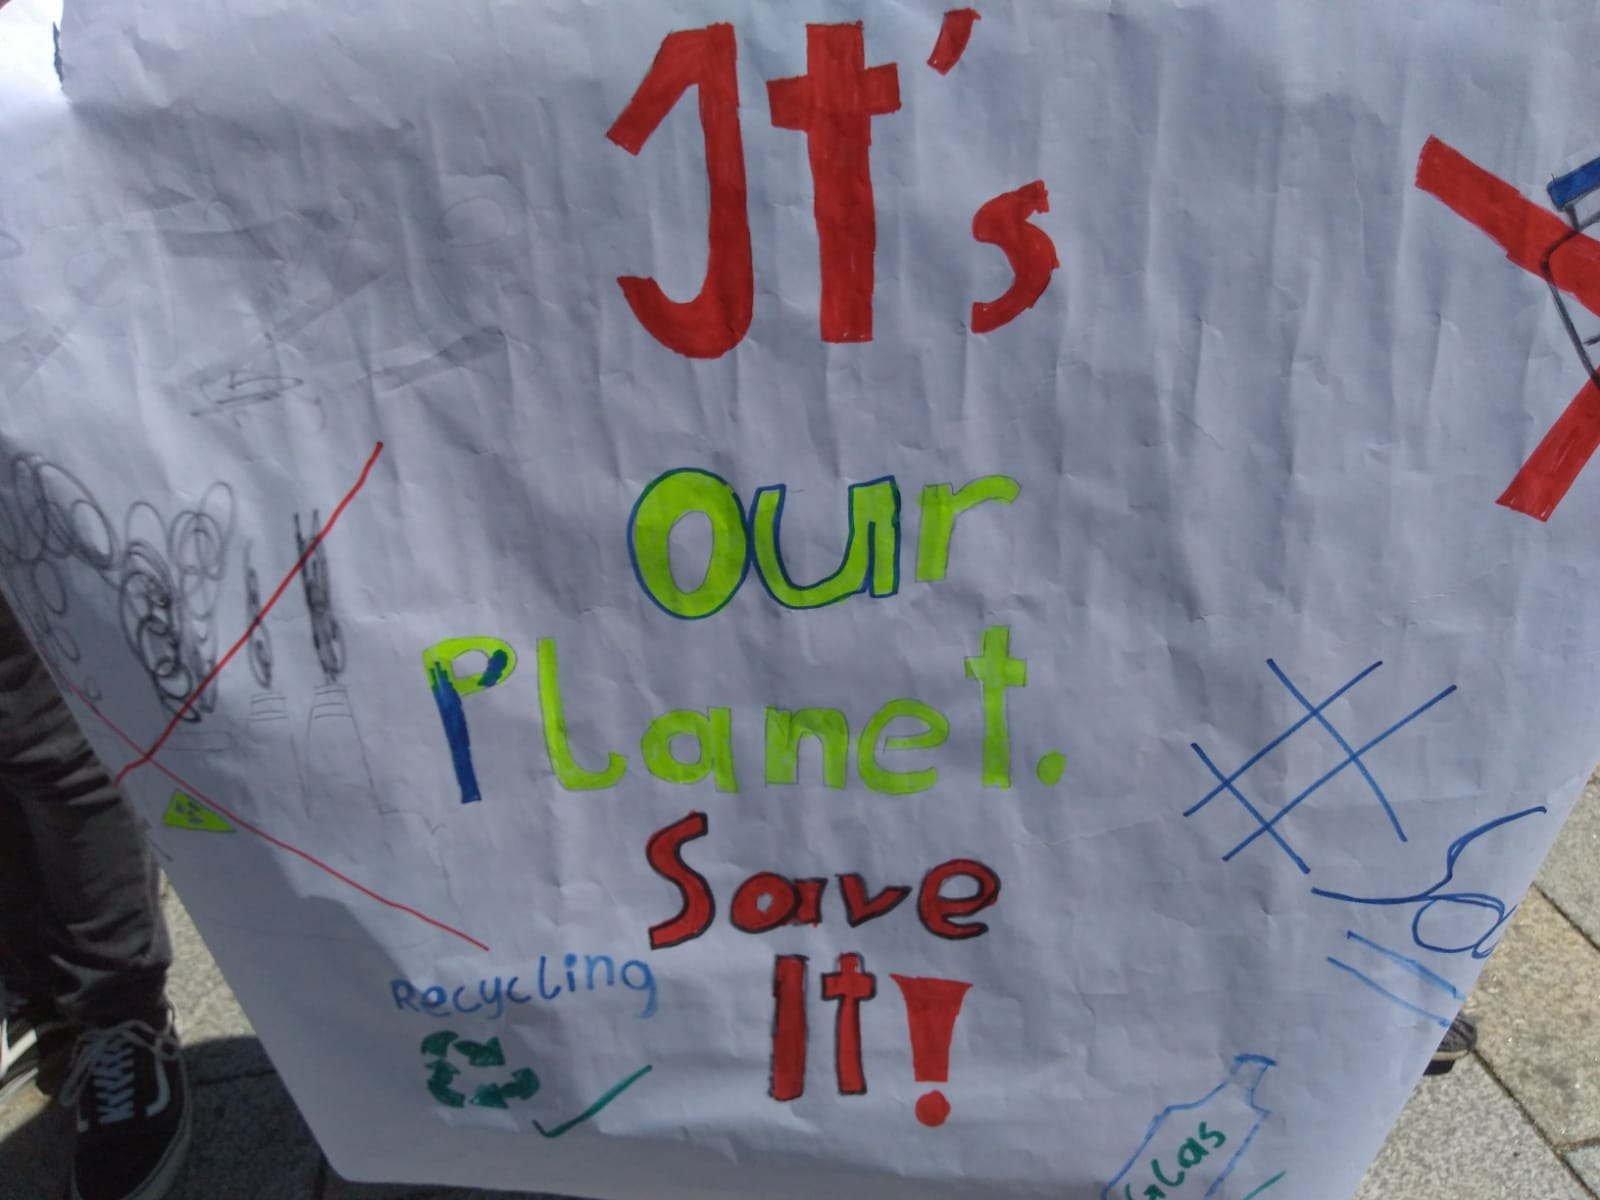 It's
our
Planet.
Save
It!
Recycling
Glas